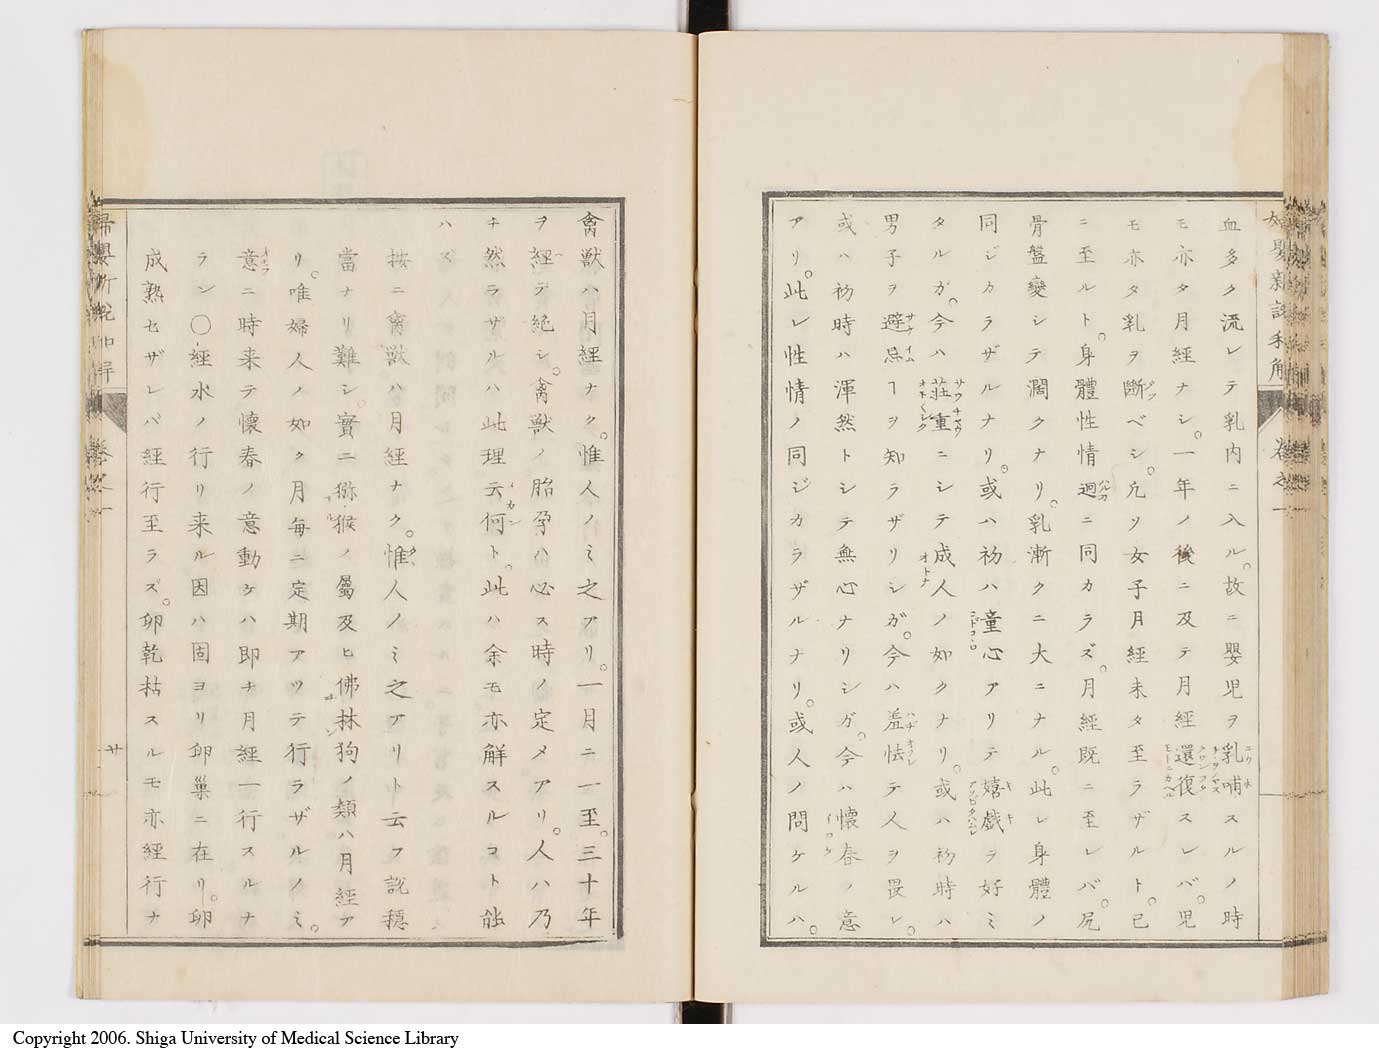 血多ク流レテ乳内ニ入ル。故ニ嬰児ヲ乳哺スルノ時
モ亦タ月經ナシ。一年ノ後ニ及テ月經還復スレバ。児
モ亦タ乳ヲ斷ベシ。凢ソ女子月經未タ至ラザルト。已
ニ至ルト。身體性情迥ニ同カラズ。月經既ニ至レバ。尻
骨盤變シテ濶クナリ。乳漸クニ大ニナル。此レ身體ノ
同ジカラザルナリ。或ハ初ハ童心アリテ嬉戲ヲ好ミ
タルガ。今ハ莊重ニシテ成人ノ如クナリ。或ハ初時ハ
男子ヲ避忌ヿヲ知ラザリシガ。今ハ羞怯テ人ヲ畏レ。
或ハ初時ハ渾然トシテ無心ナリシガ。今ハ懷春ノ意
アリ。此レ性情ノ同ジカラザルナリ。或人ノ問ケルハ。
婦嬰新説和解 卷之一
禽獣ハ月經ナク。惟人ノミ之アリ。一月ニ一至。三十年
ヲ經テ絶シ。禽獣ノ胎孕ハ必ス時ノ定メアリ。人ハ乃
チ然ラザルハ此理云何ト。此ハ余モ亦解スルコト能
ハズ
按ニ禽獣ハ月經ナク。惟人ノミ之アリト云フ説穏
當ナリ難シ。實ニ猕猴ノ屬及ヒ佛林狗ノ類ハ月經ア
リ。唯婦人ノ如ク月毎ニ定期アツテ行ラザルノミ。
意ニ時来テ懷春ノ意動ケハ即チ月經一行スルナ
ラン〇經水ノ行リ来ル因ハ固ヨリ卵巣ニ在リ。卵
成熟セザレバ經行至ラズ。卵乾枯スルモ亦經行ナ
婦嬰新説和解 卷之一 廿
Copyright 2006. Shiga University of Medical Science Library